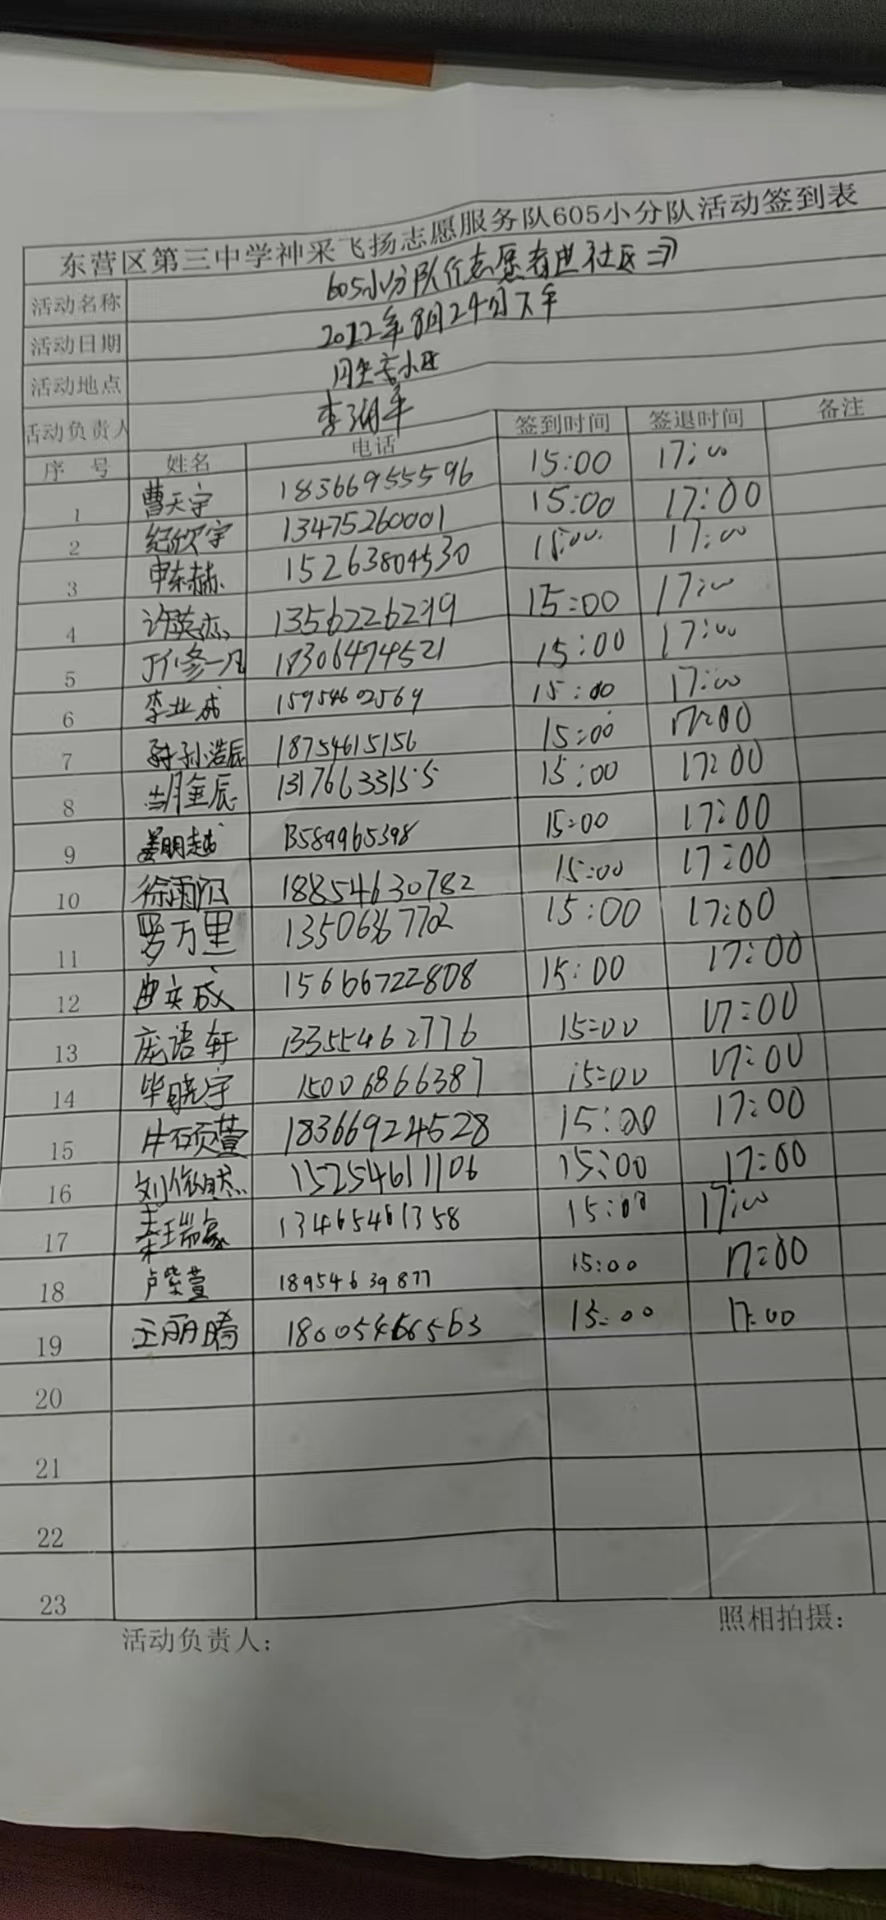 东营区第三中学神采飞扬志愿服务队605小分队活动签到表
活动名称 605小分队 志愿者进社区
活动日期 2022年8月24日下午
活动地点 小区
活动负责人 李
序 号 姓名 电话 签到时间 签退时间 备注
1 曹天宇 18366955596 15:00 17:00
2 纪欣宇 13475260001 15:00 17:00
3 申东赫 15263804530 15:00 17:00
4 许英杰 13562262719 15:00 17:00
5 修一凡 18306474521 15:00 17:00
6 李业成 15954602569 15:00 17:00
7 孙浩辰 18754615156 15:00 17:00
8 胡金辰 13176633155 15:00 17:00
9 姜明越 13589965398 15:00 17:00
10 徐雨 18854630782 15:00 17:00
11 罗万里 15:00 17:00
12 曲奕成 15666722808 15:00 17:00
13 庞语轩 13355462776 15:00 17:00
14 毕晓宇 15006866387 15:00 17:00
15 牛硕萱 18366924528 15:00 17:00
16 刘依然 15254611106 15:00 17:00
17 秦瑞豪 13465461358 15:00 17:00
18 卢紫萱 18954639877 15:00 17:00
19 王丽晴 18605466563 15:00 17:00
20
21
22
23
活动负责人： 照相拍摄：